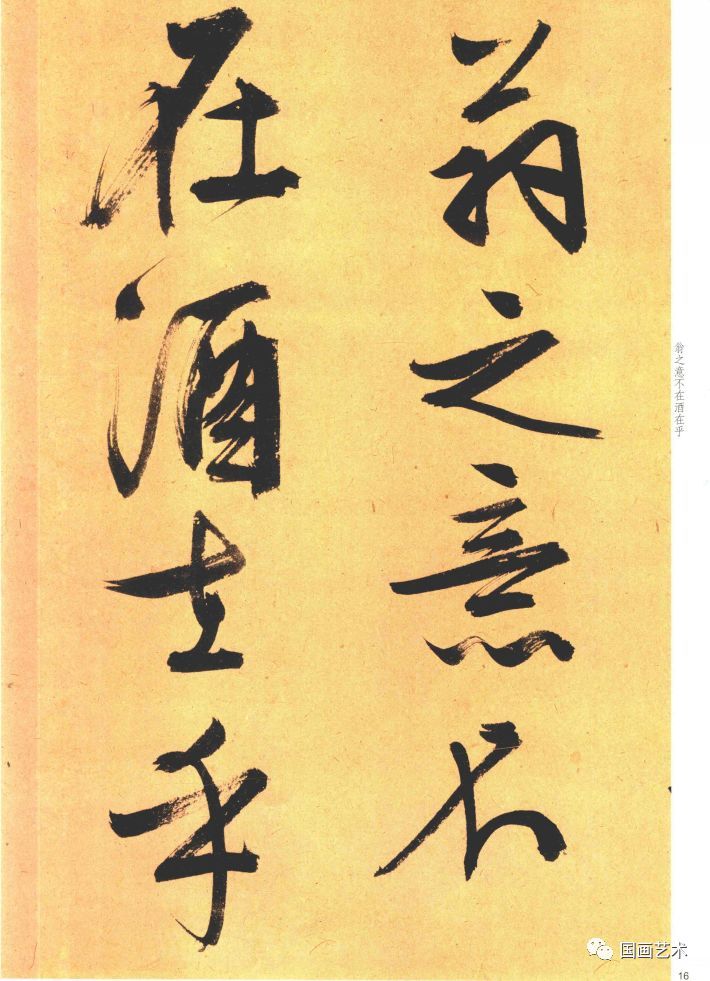 翁之意不
在酒在乎
翁之意不在酒在乎
国画艺术
16